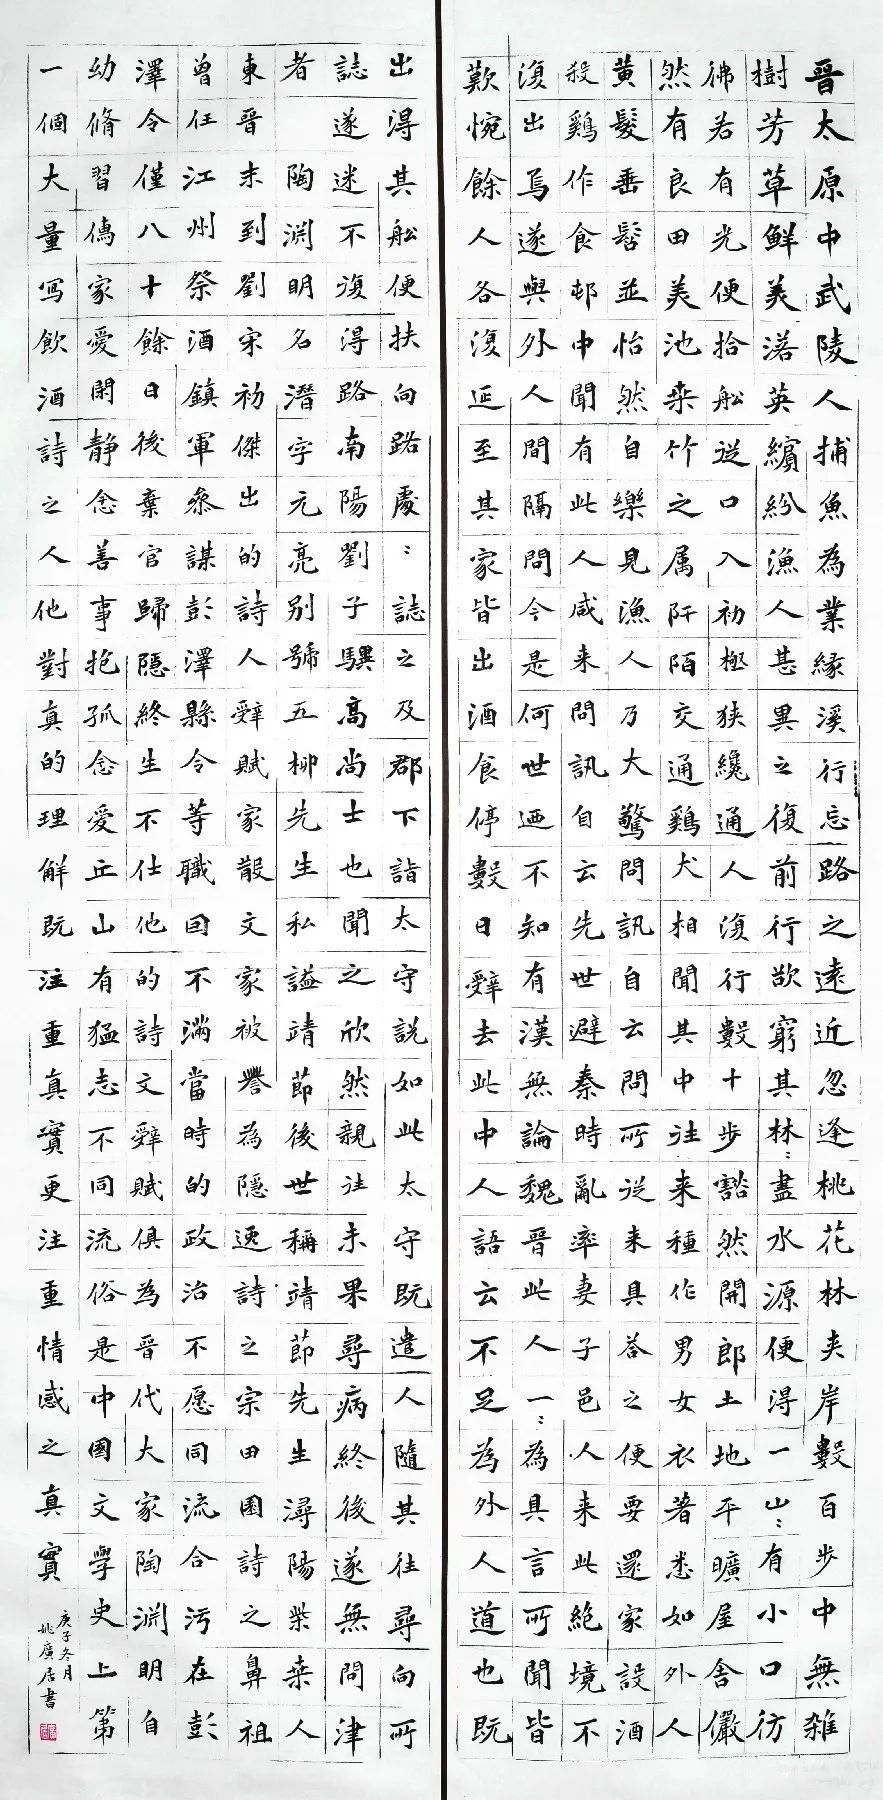 晉太原中武陵人捕魚為業緣溪行忘路之遠近忽逢桃花林夹岸數百步中無雜
樹芳草鮮美落英繽紛漁人甚異之復前行欲窮其林〻盡水源便得一山〻有小口彷
彿若有光便拾舩從口入初極狹纔通人復行數十步豁然開郎土地平曠屋舍儼
然有良田美池桒竹之属阡陌交通鷄犬相聞其中往来種作男女衣著悉如外人
黄髮垂髫並怡然自樂見漁人乃大驚問訊自云問所從来具荅之便要還家設酒
殺鷄作食邨中聞有此人咸来問訊自云先世避秦時亂率妻子邑人来此絶境不
復出焉遂與外人間隔問今是何世廼不知有漢無論魏晉此人一〻為具言所聞皆
歎惋餘人各復延至其家皆出酒食停數日辭去此中人語云不足為外人道也既
出得其舩便扶向路處〻誌之及郡下詣太守說如此太守既遣人隨其往尋向所
誌遂迷不復得路南陽劉子驥高尚士也聞之欣然親往未果尋病終後遂無問津
者 陶淵明名潛字元亮别號五柳先生私謚靖節後世稱靖節先生潯陽柴桒人
東晉末到劉宋初傑出的詩人辭賦家散文家被譽為隱逸詩之宗田園詩之鼻祖
曾任江州祭酒鎮軍參謀彭澤縣令等職囙不滿當時的政治不愿同流合污在彭
澤令僅八十餘日後棄官歸隱終生不仕他的詩文辭賦俱為晉代大家陶淵明自
幼脩習傳家愛閑静念善事抱孤念愛丘山有猛志不同流俗是中國文學史上第
一個大量寫飲酒詩之人他對真的理解既注重真實更注重情感之真實
庚子冬月
姚廣居書